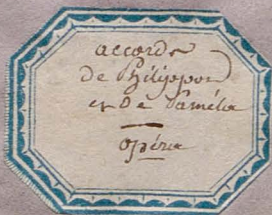 accords
de Philippon
et de Paméla
opéra